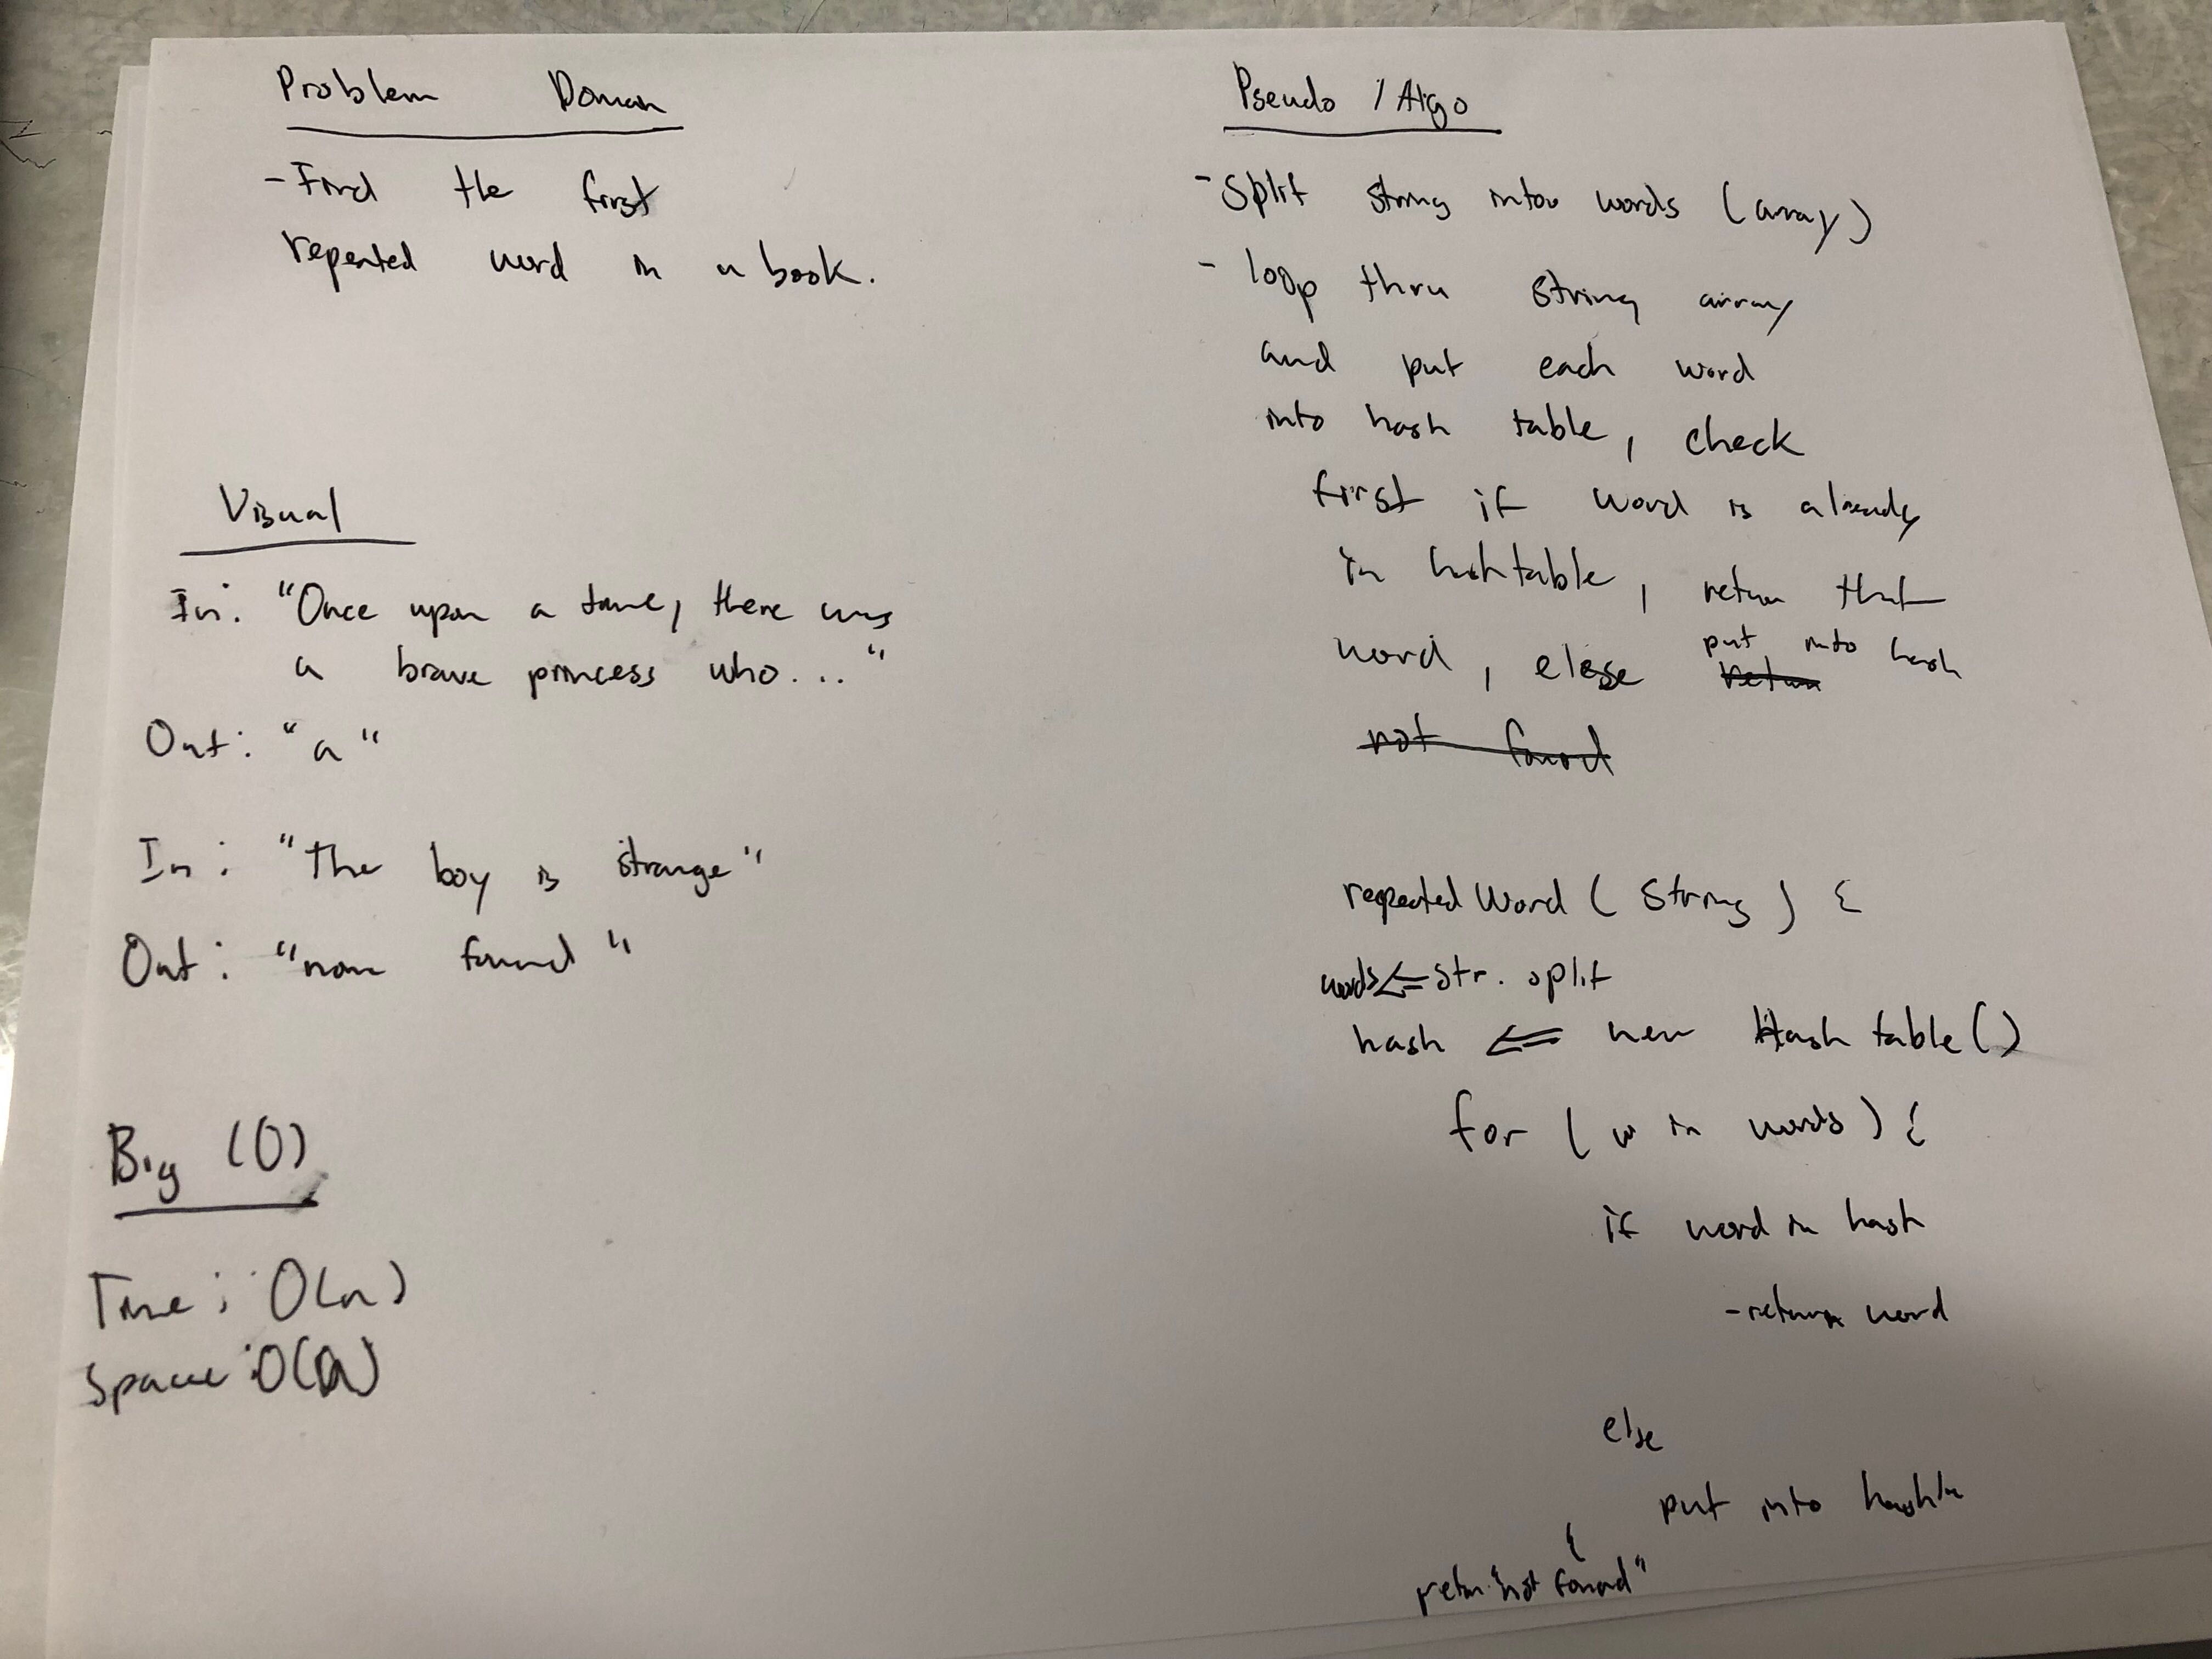 Problem Domain
- Find the first
repeated word in a book.
Visual
In: "Once upon a time, there was
a brave princess who..."
Out: "a"
In: "The boy is strange"
Out: "non found"
Big (O)
Time: O(n)
Space: O(n)
Pseudo / Algo
- Split string into words (array)
- loop thru string array
and put each word
into hash table, check
first if word is already
in hashtable, return that
word, else put into hash
return
not found
repeatedWord (String) {
words <= str. split
hash <= new Hashtable()
for (w in words) {
if word in hash
- return word
else
put into
}
return "not found"